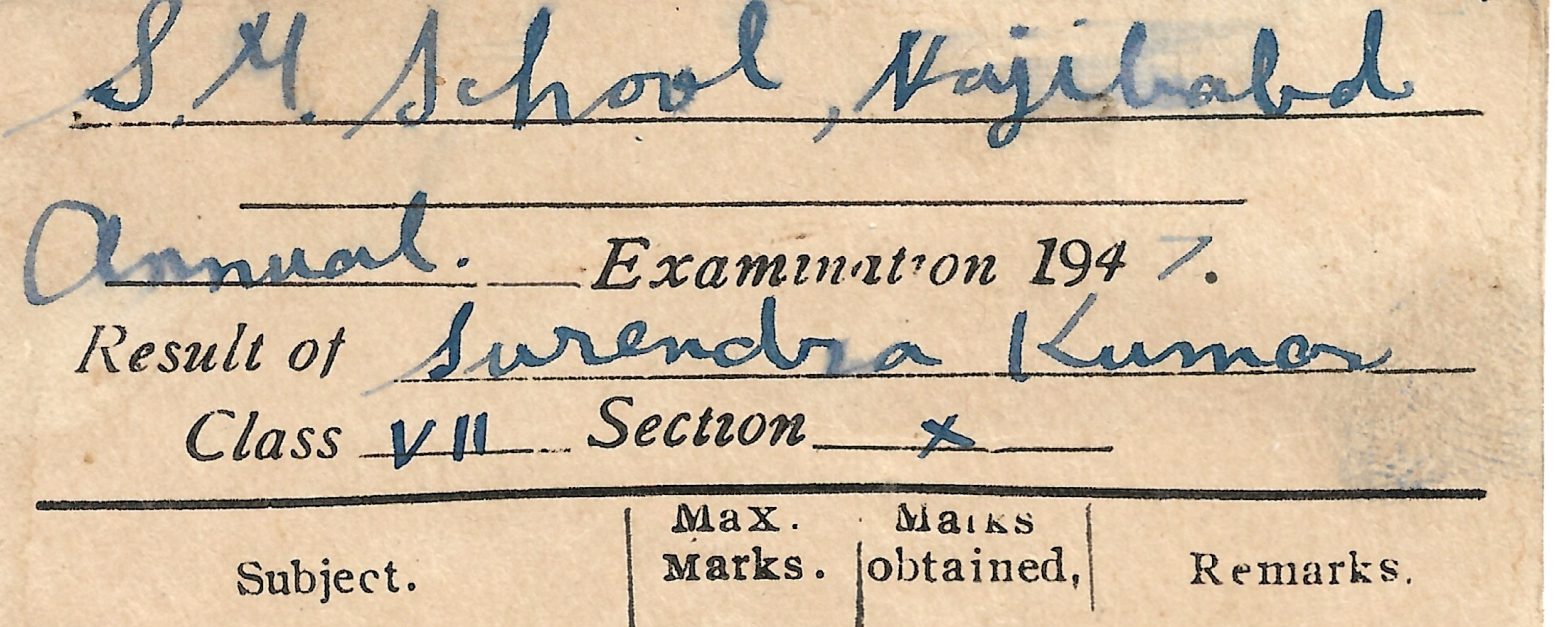 S. M. School, Najibabd
Annual. Examination 1947.
Result of Surendra Kumar
Class VII Section x
Subject. Max. Marks. Marks obtained, Remarks.